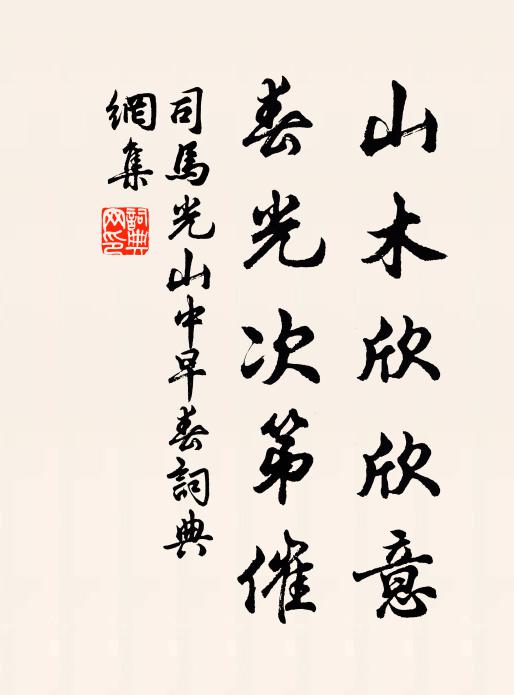 山木欣欣意
春光次第催
司馬光山中早春詞典
網集
詞典
网印